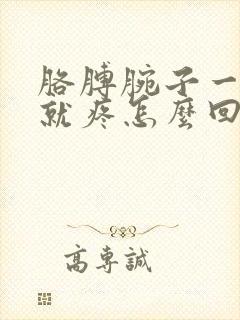 胳膊腕子一
就疼怎麼回
高專誠